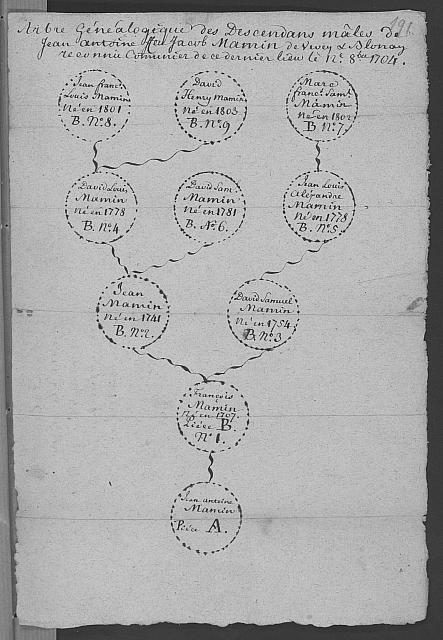 191.
Arbre Généalogique des Descendans mâles de
Jean Antoine ffeu Jacob Mamin de Vevey & Blonay
reconnu Communier de ce dernier lieu le 8bre 1704.
Jean franç.
Louis Mamin
Né en 1801
B. N.º 8.
David
Henry Mamin
né en 1803
B. N.º 9
Marc
franç.s Sam.l
Mamin
né en 1802
B N.º 7.
David Louis
Mamin
né en 1778
B. N.º 4
David Sam.
Mamin
né en 1781
B. N.º 6.
Jean Louis
Aléxandre
Mamin
né en 1778
B. N.º 5.
Jean
Mamin
Né en 1741
B. N.º 2.
David Samuel
Mamin
Né en 1754
B. N.º 3
François
Mamin
né en 1707.
Piéce B.
N.º 1.
Jean antoine
Mamin
Piéce A.